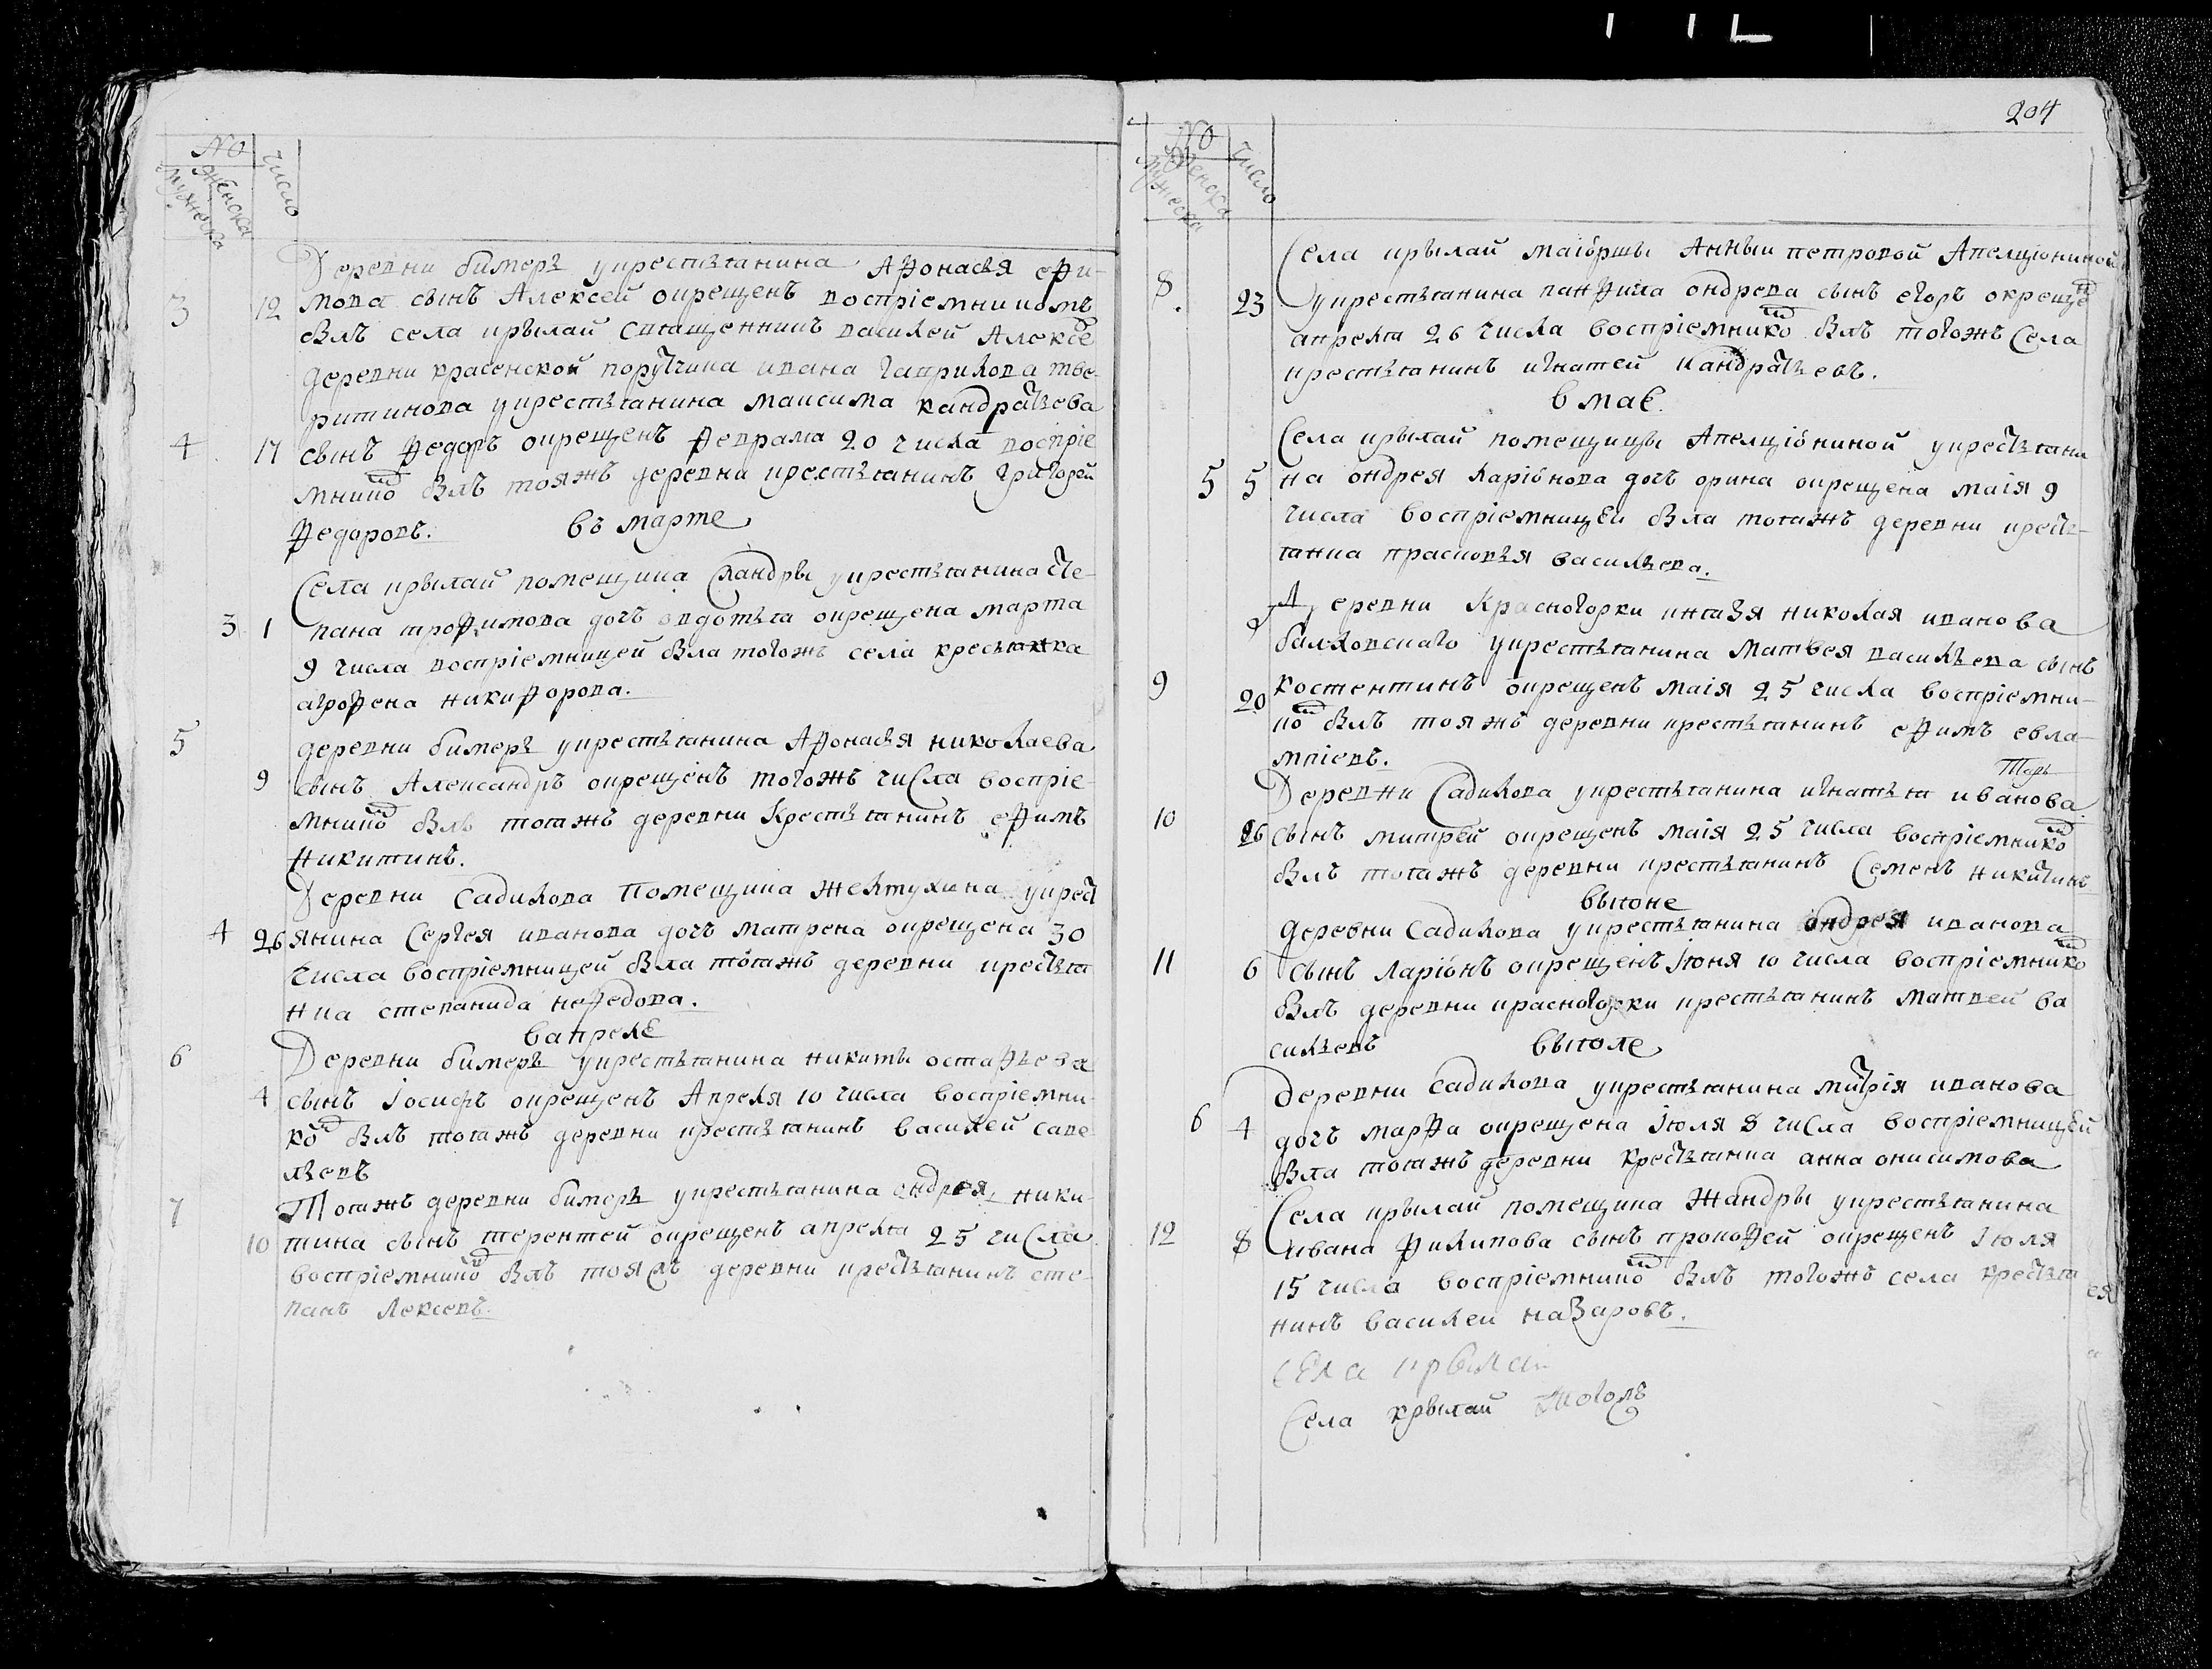 No
мужеска
женска
число
Деревни бимеръ укрестьянина Афонасья ефи-
3 12 мова сынъ Алексей окрещенъ воспріемникомъ
былъ села крылай священникъ василей Алексе
деревни красенской порутчика ивана гаврилова тве-
ритинова укрестьянина максима кандратьева
4 17 сынъ федоръ окрещенъ февраля 20 числа воспріе
мникомъ былъ тояжъ деревни крестьянинъ григорей
федоровъ. въ марте
Села крылай помещика укрестьянина сте-
3 1 пана трофимова дочъ авдотья окрещена марта
9 числа воспріемницей была тогожъ села крестьянка
агрофена никифорова.
5 деревни бимеръ укрестьянина Афонасья николаева
9 сынъ Александръ окрещенъ тогожъ числа воспріе-
мникомъ былъ тояжъ деревни крестьянинъ ефимъ
никитинъ.
Деревни Садикова помещика желтухина укрест
4 26 янина Сергея иванова дочъ матрена окрещена 30
числа воспріемницей была тояжъ деревни крестья
нка степанида нефедова.
вапреле
6 Деревни бимеръ укрестьянина никиты остафьева
4 сынъ іосифъ окрещенъ Апреля 10 числа воспріемни-
комъ былъ тояжъ деревни крестьянинъ василей саве
льевъ
7 Тояжъ деревни бимеръ укрестьянина андрея ники-
10 тина сынъ терентей окрещенъ апреля 25 числа
воспріемникомъ былъ тояжъ деревни крестьянинъ сте-
панъ Лексеевъ.
204
No
мужеска
женска
число
Села крылай маіорши Анны петровой Апелціониной
8 23 укрестьянина панфила ондрева сынъ егоръ окрещенъ
апреля 26 числа воспріемникомъ былъ тогожъ Села
крестьянинъ игнатей кандратьевъ.
в мае.
Села крылай помещицы Апелціониной укрестьяни
5 5 на ондрея ларіонова дочъ орина окрещена маія 9
числа воспріемницей была тояжъ деревни крестъ-
янка прасковья васильева.
Деревни Красногорки князя николая иванова
баляховскаго укрестьянина матвея васильева сынъ
9 20 костентинъ окрещенъ маія 25 числа воспріемни-
комъ былъ тояжъ деревни крестьянинъ ефимъ евла-
мпіевъ.
Деревни Садикова укрестьянина игнатья иванова
10 26 сынъ митрей окрещенъ маія 25 числа воспріемникомъ
былъ тояжъ деревни крестьянинъ Семенъ никитинъ
выюне
деревни Садикова укрестьянина андрея иванова
11 6 сынъ ларіонъ окрещенъ іюня 10 числа воспріемникомъ
былъ деревни красногорки крестьянинъ матвей ва
сильевъ выюле
деревни садикова укрестьянина митрія иванова
6 4 дочъ марфа окрещена іюля 8 числа воспріемницей
была тояжъ деревни крестьянка анна онисимова
Села крылай помещика Жандры укрестьянина
12 8 ивана филипова сынъ прокофей окрещенъ іюля
15 числа воспріемникомъ былъ тогожъ села крестья
нинъ василеи назаровъ.
села крылаи
Села крылай